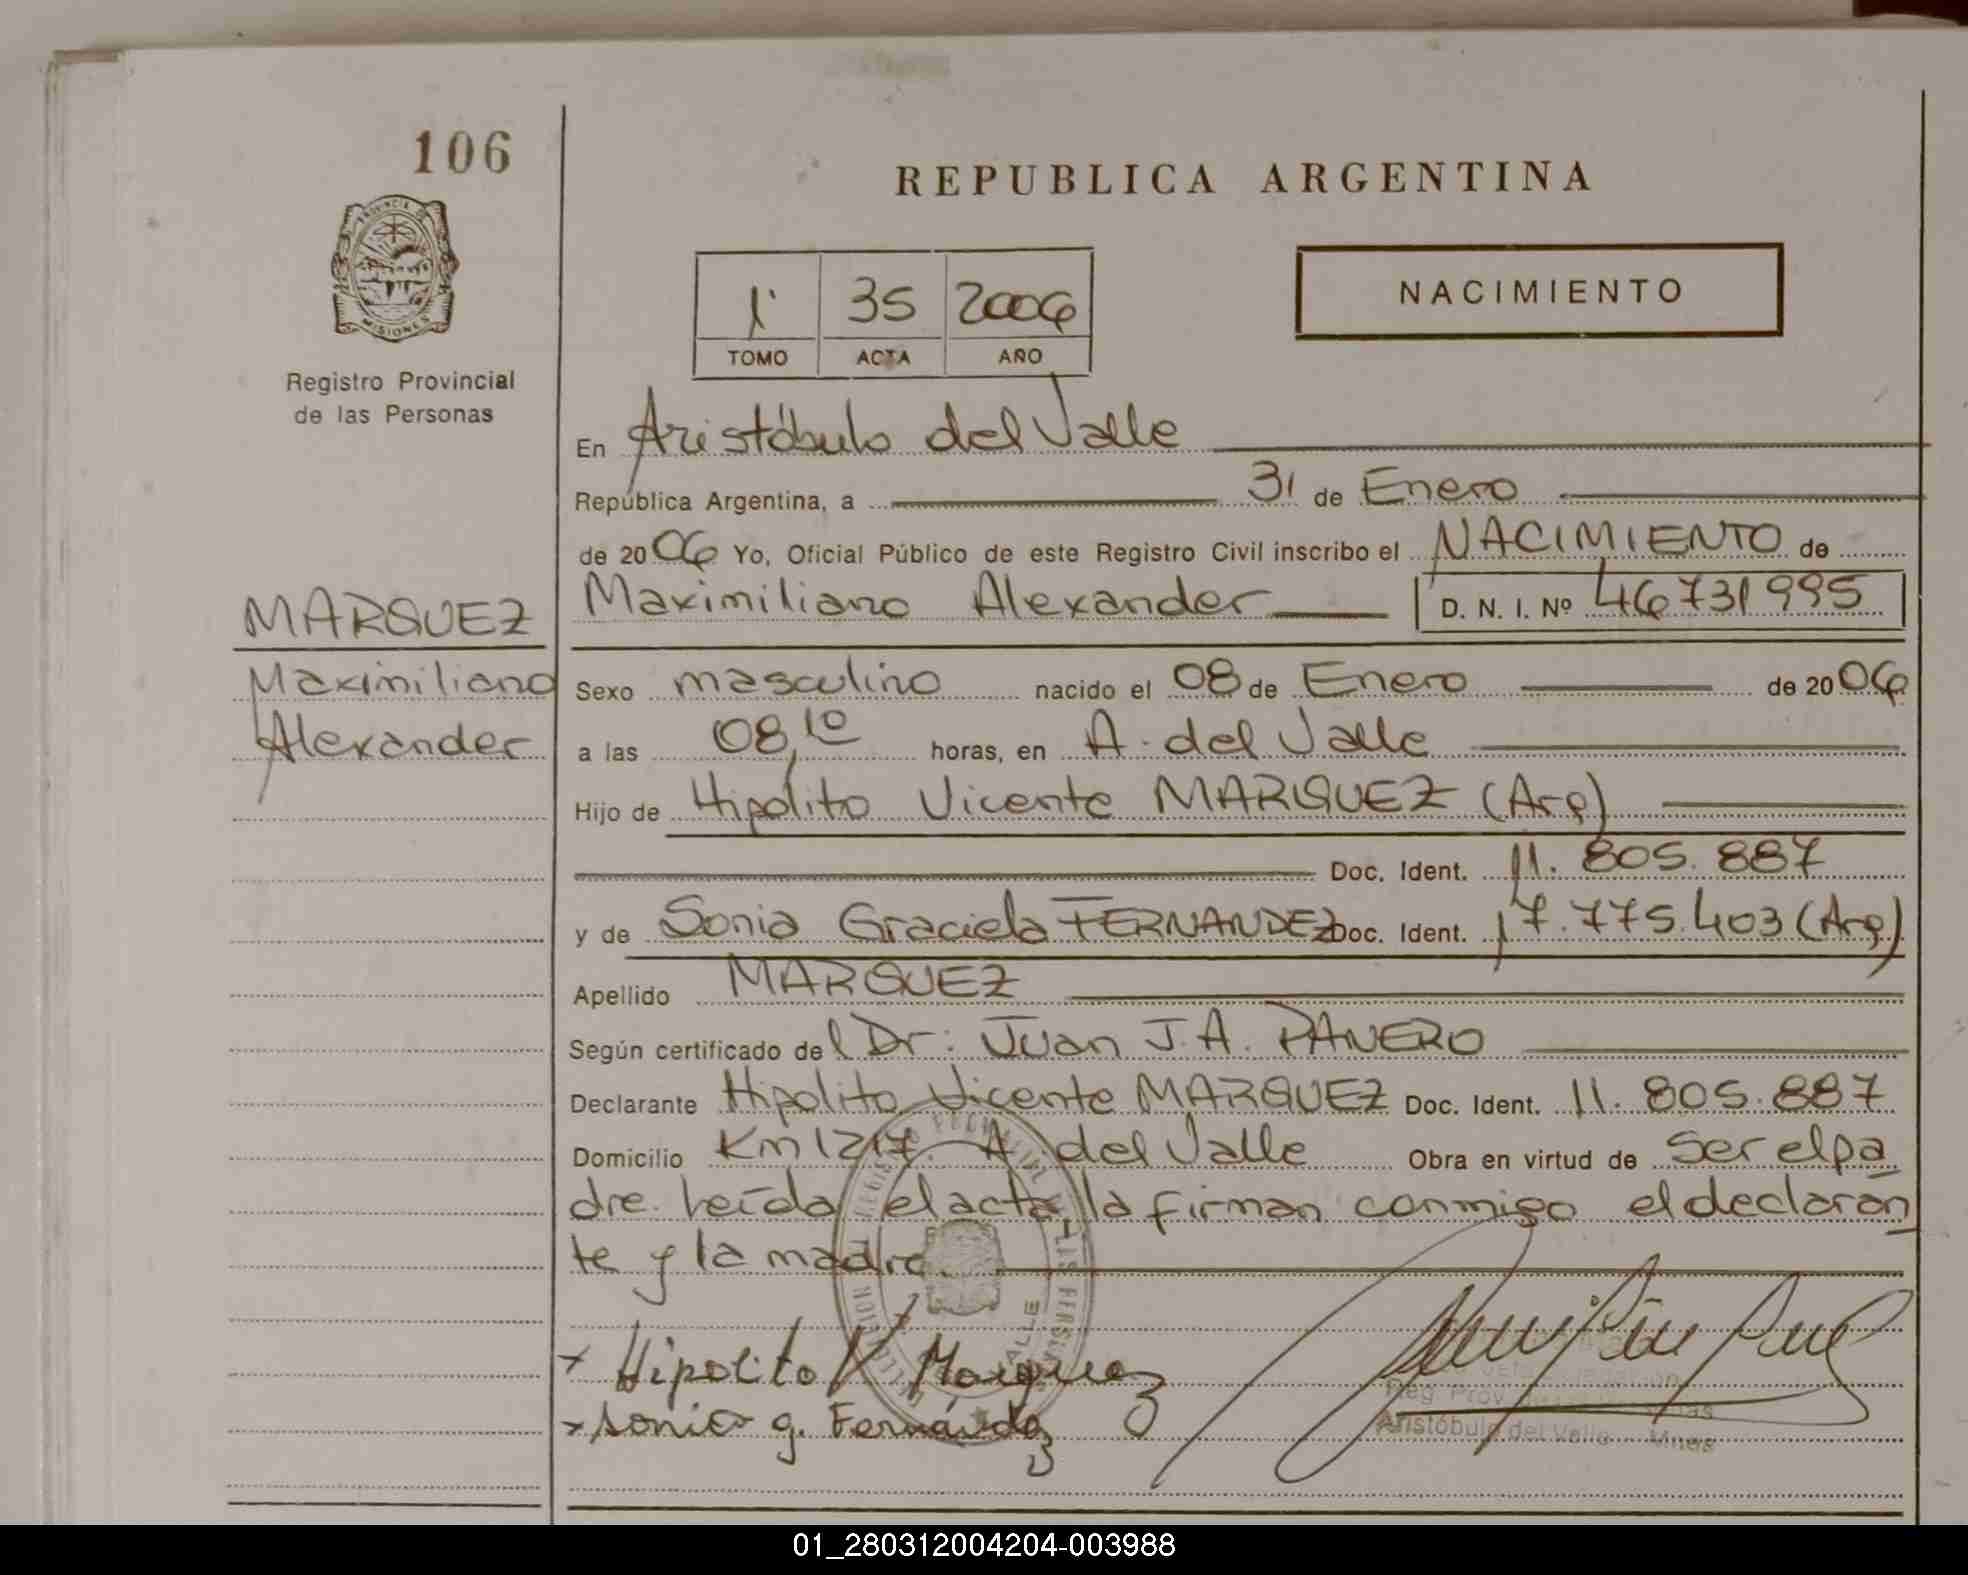 106
REPUBLICA ARGENTINA
PROVINCIA DE
MISIONES
Registro Provincial
de las Personas
1º 35 2006
TOMO ACTA AÑO
NACIMIENTO
En Aristóbulo del Valle
República Argentina, a 31 de Enero
de 2006 Yo, Oficial Público de este Registro Civil inscribo el NACIMIENTO de
MARQUEZ
Maximiliano Alexander D. N. I. Nº 46731995
Maximiliano
Sexo masculino nacido el 08 de Enero de 2006
Alexander
a las 08,10 horas, en A. del Valle
Hijo de Hipólito Vicente MARQUEZ (Arg)
Doc. Ident. 11.805.887
y de Sonia Graciela FERNANDEZ Doc. Ident. 17.775.403 (Arg)
Apellido MARQUEZ
Según certificado del Dr: Juan J.A. PANERO
Declarante Hipolito Vicente MARQUEZ Doc. Ident. 11.805.887
Domicilio Km 1217. A del Valle Obra en virtud de ser el pa
dre. Leída el acta, la firman conmigo el declaran
te y la madre.
x Hipolito V Marquez
x Sonia g. Fernández
Reg Prov
Aristóbulo del Valle - Mnes
01_280312004204-003988